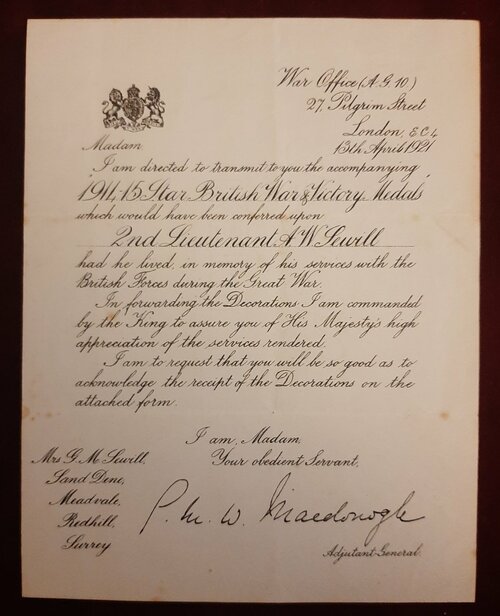 War Office (A.G.10.)
27, Pilgrim Street
London, E.C.4.
13th April 1921
Madam
I am directed to transmit to you the accompanying
1914-15 Star British War & Victory Medals
which would have been conferred upon
2nd Lieutenant A W Sewill
had he lived, in memory of his services with the
British Forces during the Great War.
In forwarding the Decorations I am commanded
by the King to assure you of His Majesty's high
appreciation of the services rendered.
I am to request that you will be so good as to
acknowledge the receipt of the Decorations on the
attached form.
I am, Madam,
Your obedient Servant,
Mrs G. M. Sewill,
Sand Dene,
Meadvale,
Redhill,
Surrey
G. M. W. Macdonogh
Adjutant-General.